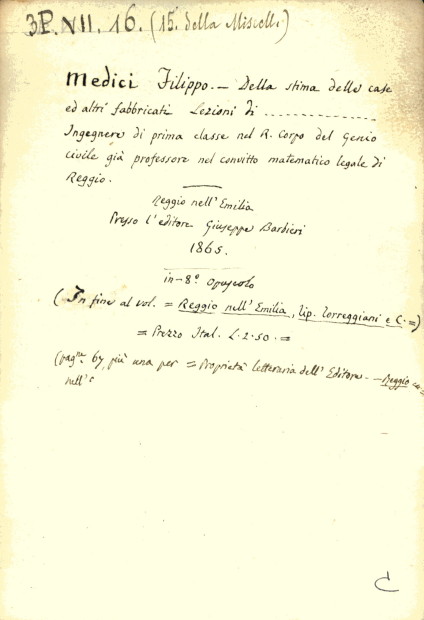 3P. VII. 16. (15. della Miscell.)
Medici Filippo. — Della stima delle case
ed altri fabbricati Lezioni di ..................
Ingegnere di prima classe nel R. Corpo del Genio
civile già professore nel convitto matematico legale di
Reggio.
Reggio nell' Emilia
Presso l'editore Giuseppe Barbieri
1865.
in-8° Opuscolo
(In fine al vol. = Reggio nell' Emilia, tip. Torreggiani e C. =)
= Prezzo Ital. L. 2.50. =
(pagne 67, più una per = Proprietà letteraria dell' Editore. — Reggio
nell' E
C